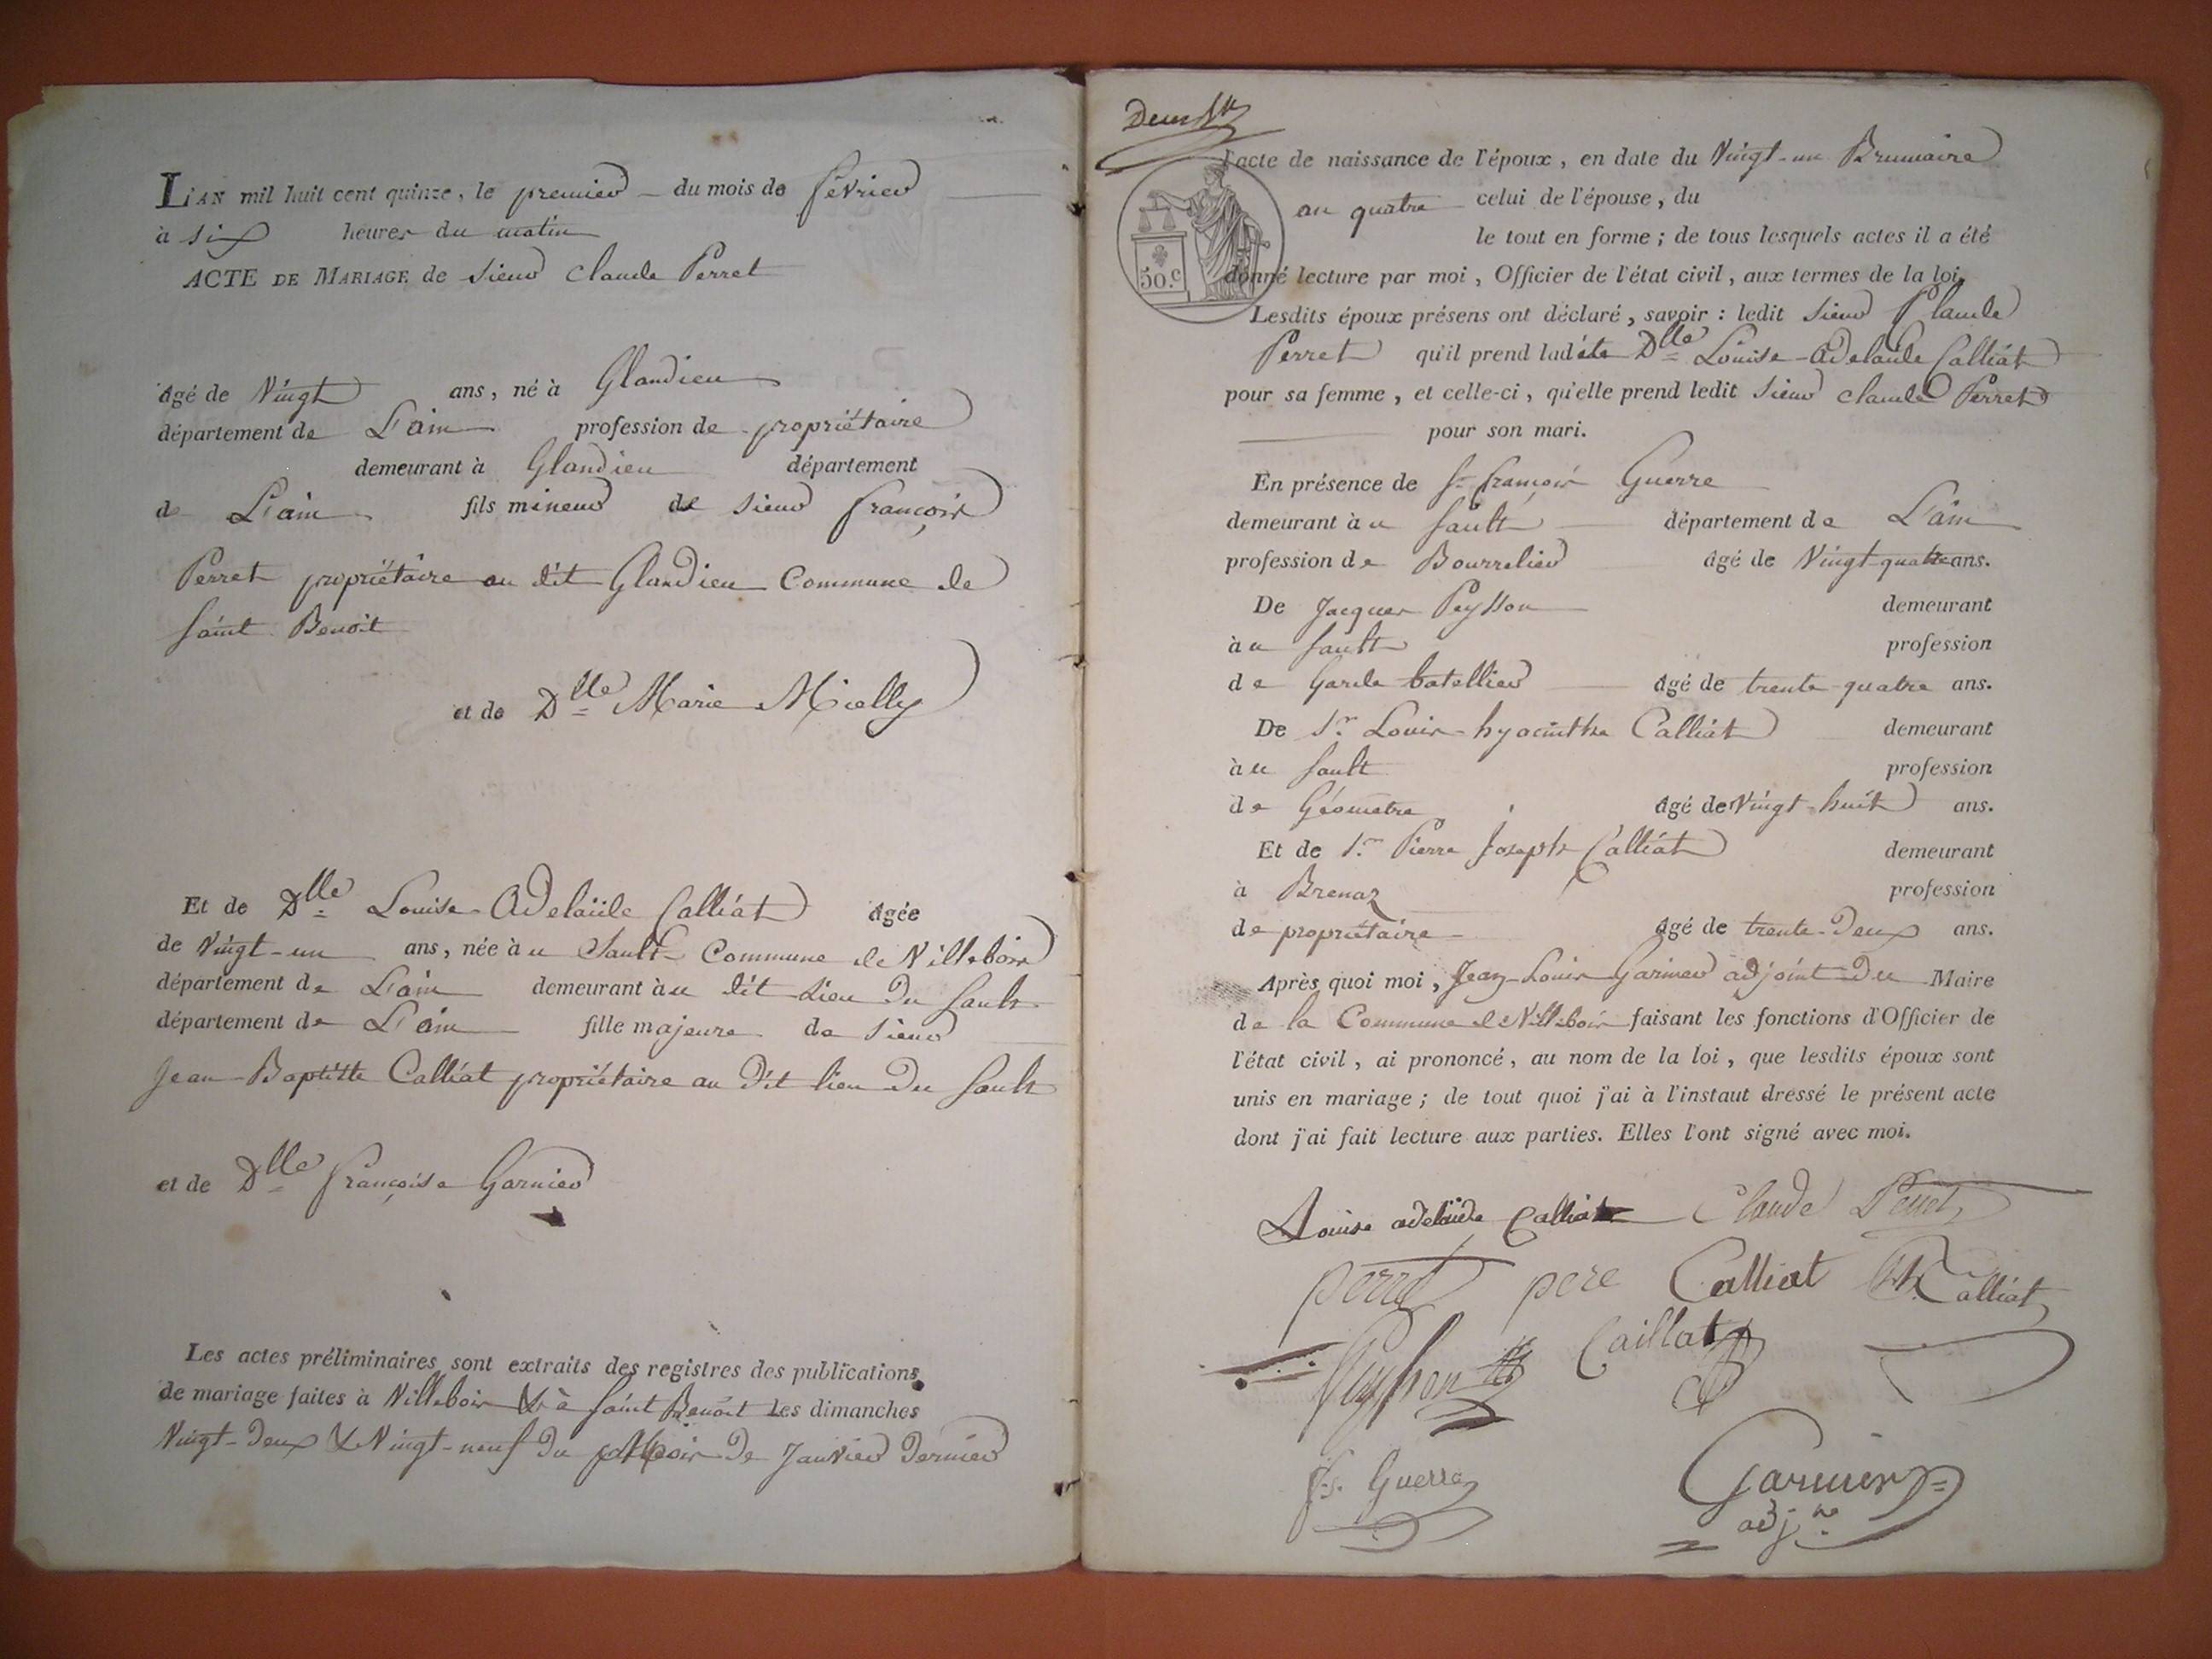 L'AN mil huit cent quinze, le premier du mois de février
à six heures du matin
ACTE DE MARIAGE de sieur Claude Perret
âgé de Vingt ans, né à Glandieu
département de L'ain profession de propriétaire
demeurant à Glandieu département
de L'ain fils mineur de sieur françois
Perret propriétaire au dit Glandieu Commune de
saint Benoit
et de Dlle Marie Mielly
Et de Dlle Louise-Adelaïde Calliat âgée
de Vingt-un ans, née à u Sault Commune de Villebois
département de L'ain demeurant à u dit Lieu du Sault
département de L'ain fille majeure de sieur
Jean-Baptiste Calliat propriétaire au dit lieu du Sault
et de Dlle françoise Garnier
Les actes préliminaires sont extraits des registres des publications
de mariage faites à Villebois & à saint Benoit Les dimanches
Vingt-deux & Vingt-neuf du mois de Janvier dernier
l'acte de naissance de l'époux, en date du Vingt-un Brumaire
an quatre celui de l'épouse, du
le tout en forme ; de tous lesquels actes il a été
50.c
donné lecture par moi, Officier de l'état civil, aux termes de la loi.
Lesdits époux présens ont déclaré, savoir : ledit sieur Claude
Perret qu'il prend ladite Dlle Louise-Adelaïde Calliat
pour sa femme, et celle-ci, qu'elle prend ledit sieur Claude Perret
pour son mari.
En présence de Sr françois Guerre
demeurant à u Sault département de L'ain
profession de Bourrelier âgé de Vingt-quatre ans.
De Jacques Peysson demeurant
à u Sault profession
de Garde batellier âgé de trente-quatre ans.
De Sr. Louis-hyacinthe Calliat demeurant
à u Sault profession
de Géometre âgé de Vingt-huit ans.
Et de Sr. Pierre Joseph Calliat demeurant
à Brenaz profession
de propriétaire âgé de trente-Deux ans.
Après quoi moi, Jean-Louis Garnier adjoint du Maire
de la Commune de Villebois faisant les fonctions d'Officier de
l'état civil, ai prononcé, au nom de la loi, que lesdits époux sont
unis en mariage ; de tout quoi j'ai à l'instant dressé le présent acte
dont j'ai fait lecture aux parties. Elles l'ont signé avec moi.
Louise adelaïde Calliat Claude Perret
perret pere Calliat Calliat
Peysson Caillat
fs. Guerre Garnier
adj.